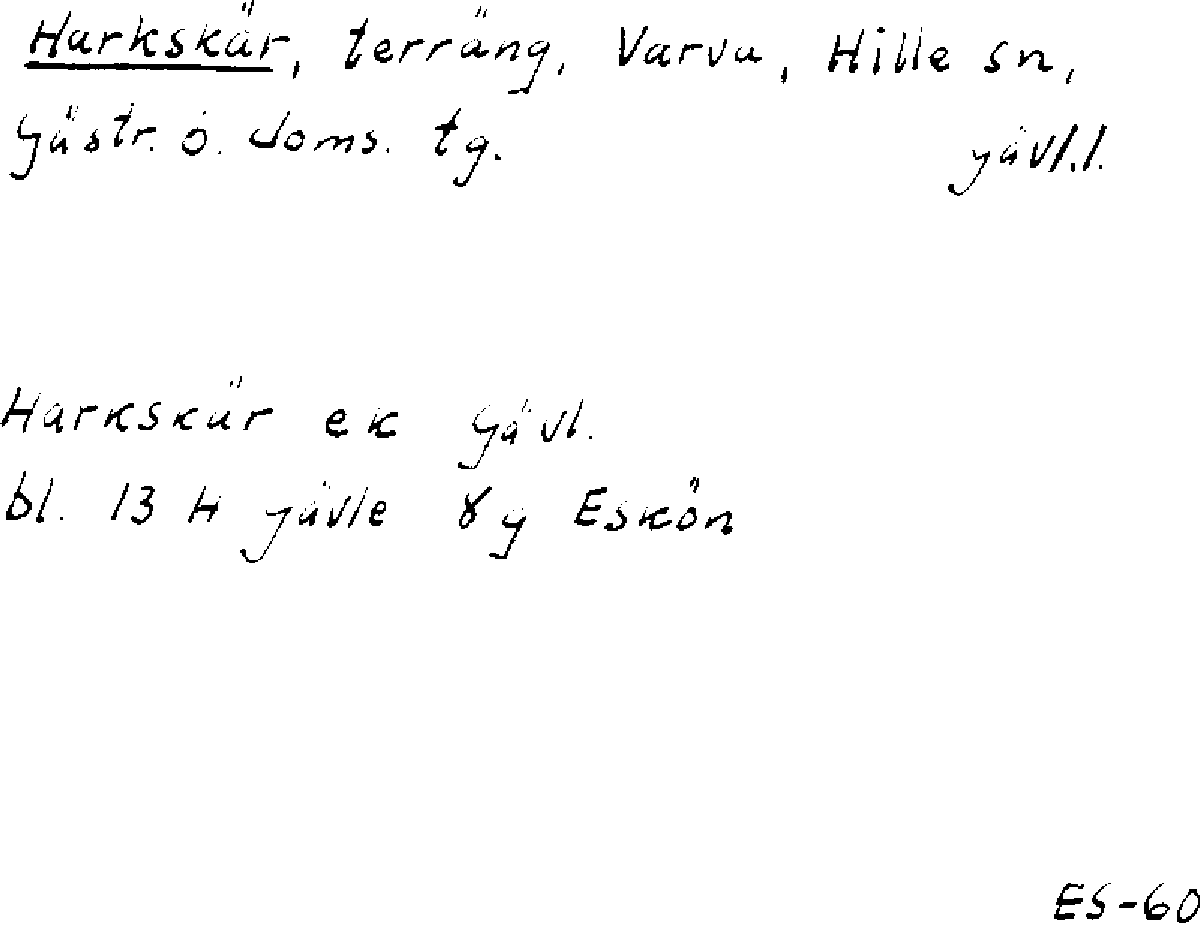 Harkskär, terräng, Varva, Hille sn,
Gästr. ö. doms. tg. Gävl.l.
Harkskär ek Gävl.
bl. 13 H Gävle 8g Eskön
ES-60